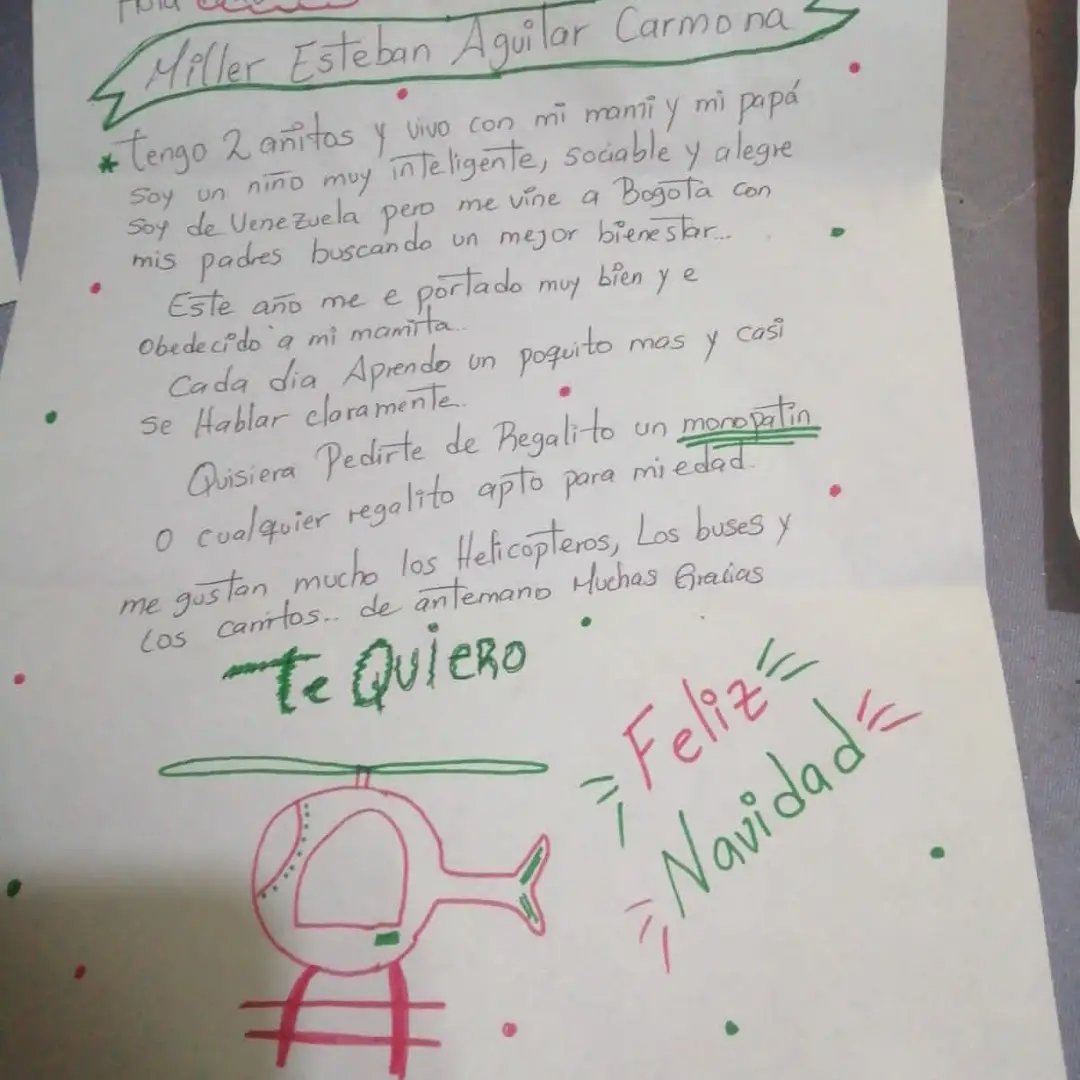 Hola
Miller Esteban Aguilar Carmona
* Tengo 2 añitos y vivo con mi mami y mi papá
Soy un niño muy inteligente, sociable y alegre
Soy de Venezuela pero me vine a Bogota con
mis padres buscando un mejor bienestar...
Este año me e portado muy bien y e
Obedecido a mi mamita..
Cada dia Aprendo un poquito mas y casi
se Hablar claramente.
Quisiera Pedirte de Regalito un monopatin
O cualquier regalito apto para mi edad.
me gustan mucho los Helicopteros, Los buses y
Los carritos.. de antemano Muchas Gracias
Te QUiERO
Feliz
Navidad